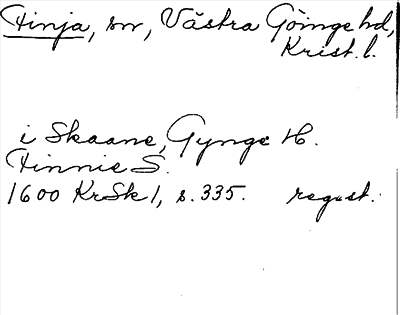 Finja, sn, Västra Göinge hd,
Krist. l.
i Skaane, Gynge H.
Finnie S.
1600 KrSk 1, s. 335. regest.